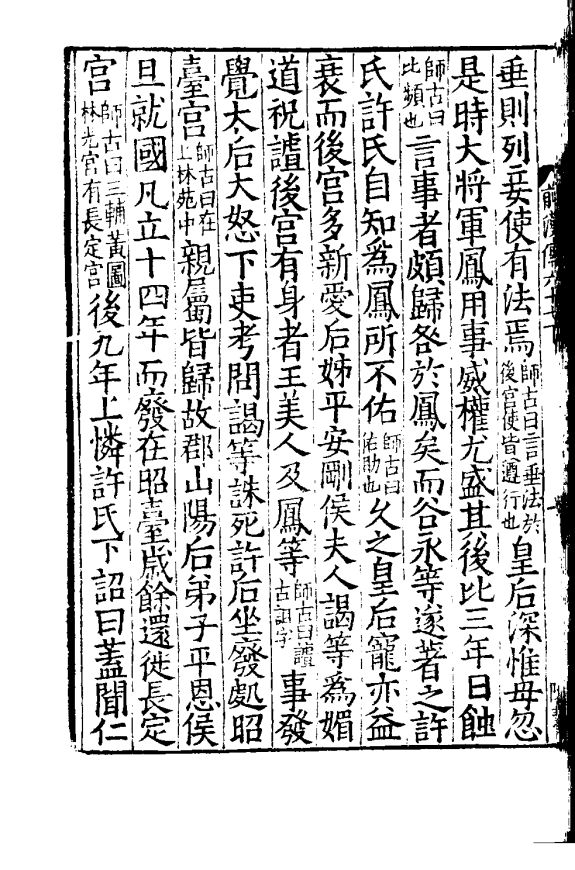 垂則列妾使有法焉師古曰言垂法於後宮使皆遵行也皇后深惟毋忽
是時大將軍鳳用事威權尤盛其後比三年日蝕
師古曰比頻也言事者頗歸咎於鳳矣而谷永等遂著之許
氏許氏自知爲鳳所不佑師古曰佑助也久之皇后寵亦益
衰而後宮多新愛后姊平安剛侯夫人謁等爲媚
道祝謯後宮有身者王美人及鳳等師古曰謯古詛字事發
覺太后大怒下吏考問謁等誅死許后坐廢處昭
臺宮師古曰在上林苑中親屬皆歸故郡山陽后弟子平恩侯
旦就國凡立十四年而廢在昭臺歲餘還徙長定
宮師古曰三輔黃圖林光宮有長定宮後九年上憐許氏下詔曰蓋聞仁